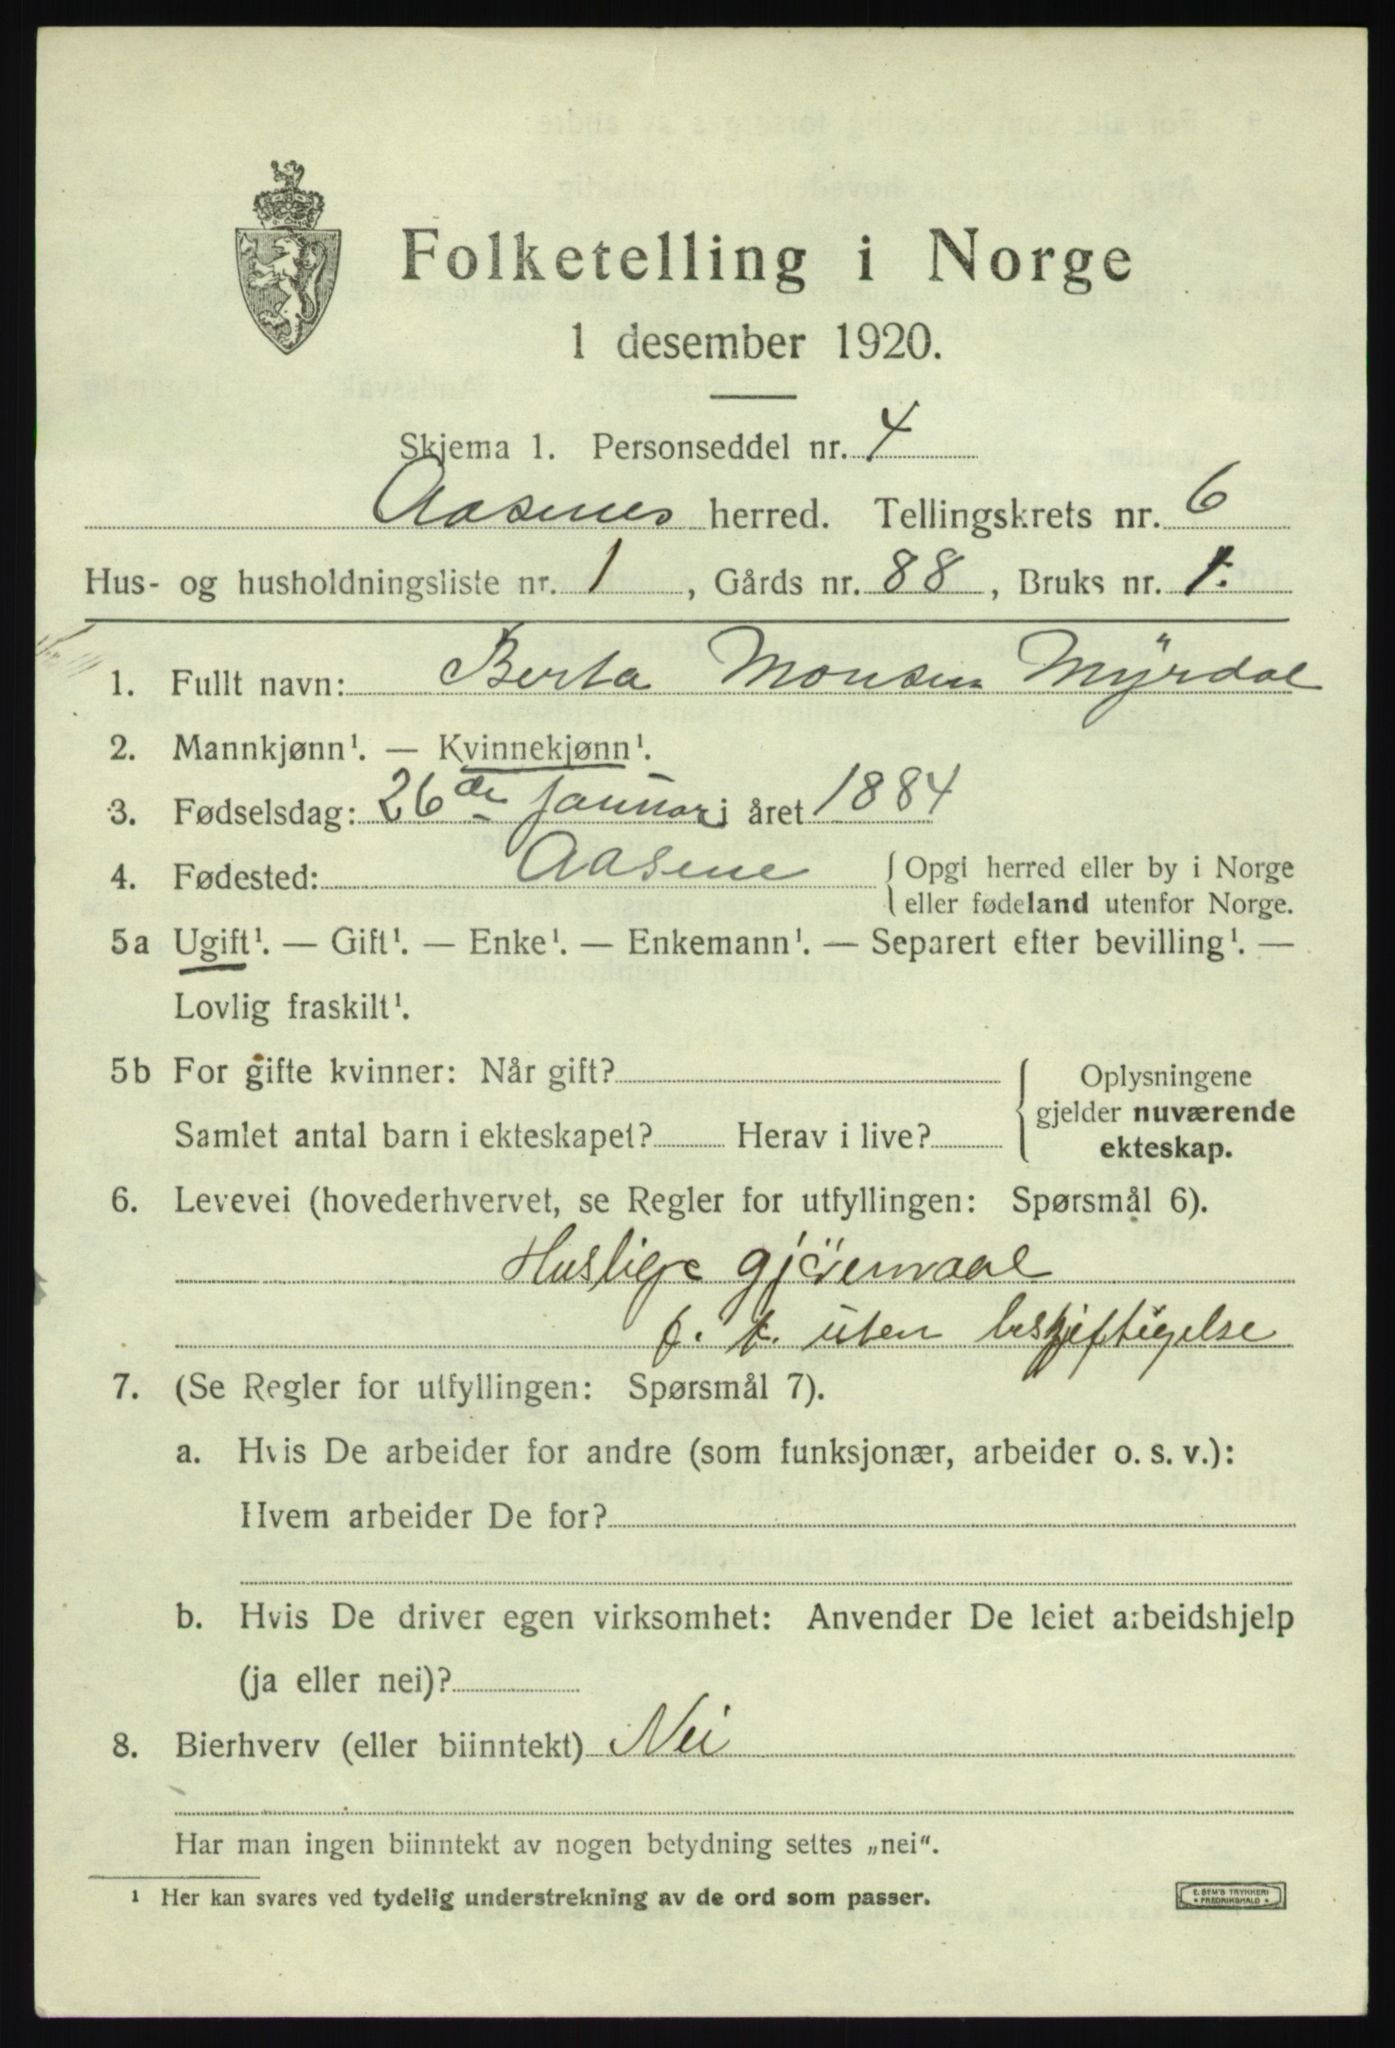 Folketelling i Norge
1 desember 1920.
Skjema 1. Personseddel nr. 4
Aasenes herred. Tellingskrets nr. 6
Hus- og husholdningsliste nr. 1, Gårds nr. 88, Bruks nr. 1.
1. Fullt navn: Berta Monsen Myrdal
2. Mannkjønn¹. — Kvinnekjønn¹.
3. Fødselsdag: 26de januari året 1884
4. Fødested: Aasene { Opgi herred eller by i Norge
eller fødeland utenfor Norge.
5a Ugift¹. — Gift¹. — Enke¹. — Enkemann¹. — Separert efter bevilling¹. —
Lovlig fraskilt¹.
5b For gifte kvinner: Når gift? { Oplysningene
gjelder nuværende
Samlet antal barn i ekteskapet? Herav i live?
ekteskap.
6. Levevei (hovederhvervet, se Regler for utfyllingen: Spørsmål 6).
Huslige gjøremaal
f. t. uten beskjeftigelse
7. (Se Regler for utfyllingen: Spørsmål 7).
a. Hvis De arbeider for andre (som funksjonær, arbeider o. s. v.):
Hvem arbeider De for?
b. Hvis De driver egen virksomhet: Anvender De leiet arbeidshjelp
(ja eller nei)?
8. Bierhverv (eller biinntekt) Nei
Har man ingen biinntekt av nogen betydning settes „nei“.
¹ Her kan svares ved tydelig understrekning av de ord som passer.
E. SEM'S TRYKKERI
• FREDRIKSHALD •